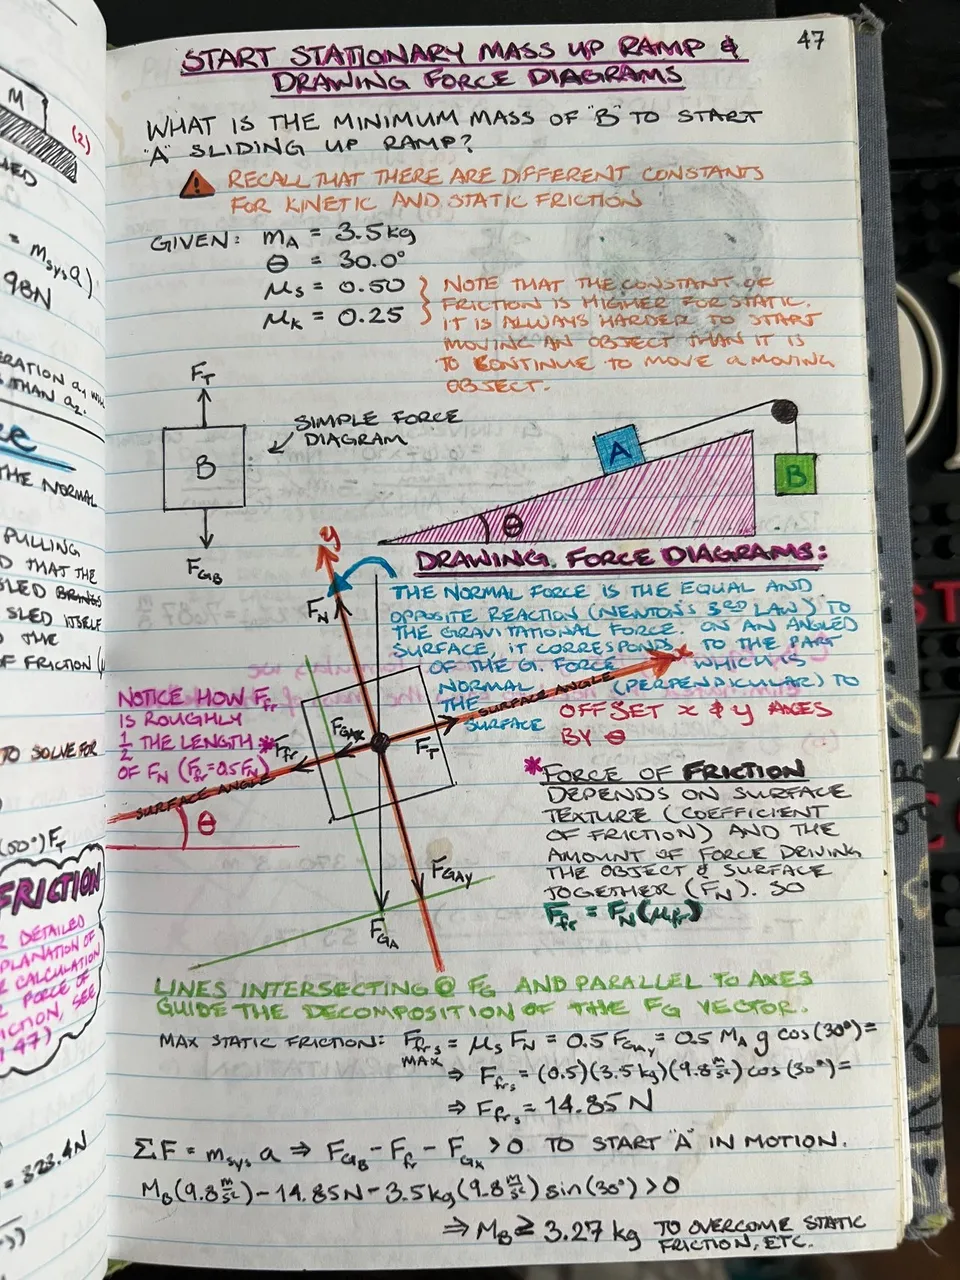 47
START STATIONARY MASS UP RAMP &
DRAWING FORCE DIAGRAMS
WHAT IS THE MINIMUM MASS OF "B" TO START
"A" SLIDING UP RAMP?
RECALL THAT THERE ARE DIFFERENT CONSTANTS
FOR KINETIC AND STATIC FRICTION
GIVEN: mA = 3.5kg
θ = 30.0°
μs = 0.50
μk = 0.25
NOTE THAT THE CONSTANT OF
FRICTION IS HIGHER FOR STATIC.
IT IS ALWAYS HARDER TO START
MOVING AN OBJECT THAN IT IS
TO CONTINUE TO MOVE A MOVING
OBJECT.
FT
SIMPLE FORCE
DIAGRAM
B
FGB
A
B
θ
DRAWING FORCE DIAGRAMS:
THE NORMAL FORCE IS THE EQUAL AND
OPPOSITE REACTION (NEWTON'S 3RD LAW) TO
THE GRAVITATIONAL FORCE. ON AN ANGLED
SURFACE, IT CORRESPONDS TO THE PART
OF THE G. FORCE WHICH IS
NORMAL (PERPENDICULAR) TO
THE
SURFACE
y
x
FN
SURFACE ANGLE
OFFSET x & y AXES
BY θ
NOTICE HOW Ffr
IS ROUGHLY
1/2 THE LENGTH
OF FN (Ffr=0.5FN)
FGAX
*Ffr
FT
SURFACE ANGLE
θ
FGAY
FGA
*FORCE OF FRICTION
DEPENDS ON SURFACE
TEXTURE (COEFFICIENT
OF FRICTION) AND THE
AMOUNT OF FORCE DRIVING
THE OBJECT & SURFACE
TOGETHER (FN). SO
Ffr = FN(μfr)
LINES INTERSECTING @ FG AND PARALLEL TO AXES
GUIDE THE DECOMPOSITION OF THE FG VECTOR.
MAX STATIC FRICTION: Ffrs = μs FN = 0.5 FGAY = 0.5 MA g cos(30°)=
MAX
⇒ Ffrs = (0.5)(3.5kg)(9.8 m/s²) cos(30°)=
⇒ Ffrs = 14.85 N
ΣF = msys a ⇒ FGB - Ffr - FGX > 0 TO START "A" IN MOTION.
MB(9.8 m/s²) - 14.85N - 3.5kg(9.8 m/s²) sin(30°) > 0
⇒ MB ≥ 3.27 kg TO OVERCOME STATIC
FRICTION, ETC.
M
(2)
= msys a)
98N
THAN a2.
THE NORMAL
PULLING
D THAT THE
SLED ITSELF
THE
OF FRICTION
TO SOLVE FOR
FT
FRICTION
DETAILED
CALCULATION
FORCE OF
SEE
47)
= 323.4N